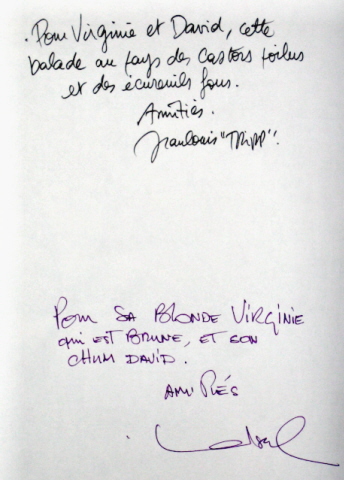 . Pour Virginie et David, cette
balade au pays des castors poilus
et des écureuils fous.
Amitiés.
Jean Louis "TRIPP".
Pour SA BLONDE VIRGINIE
qui EST BRUNE, ET SON
CHUM DAVID.
AMITIÉS